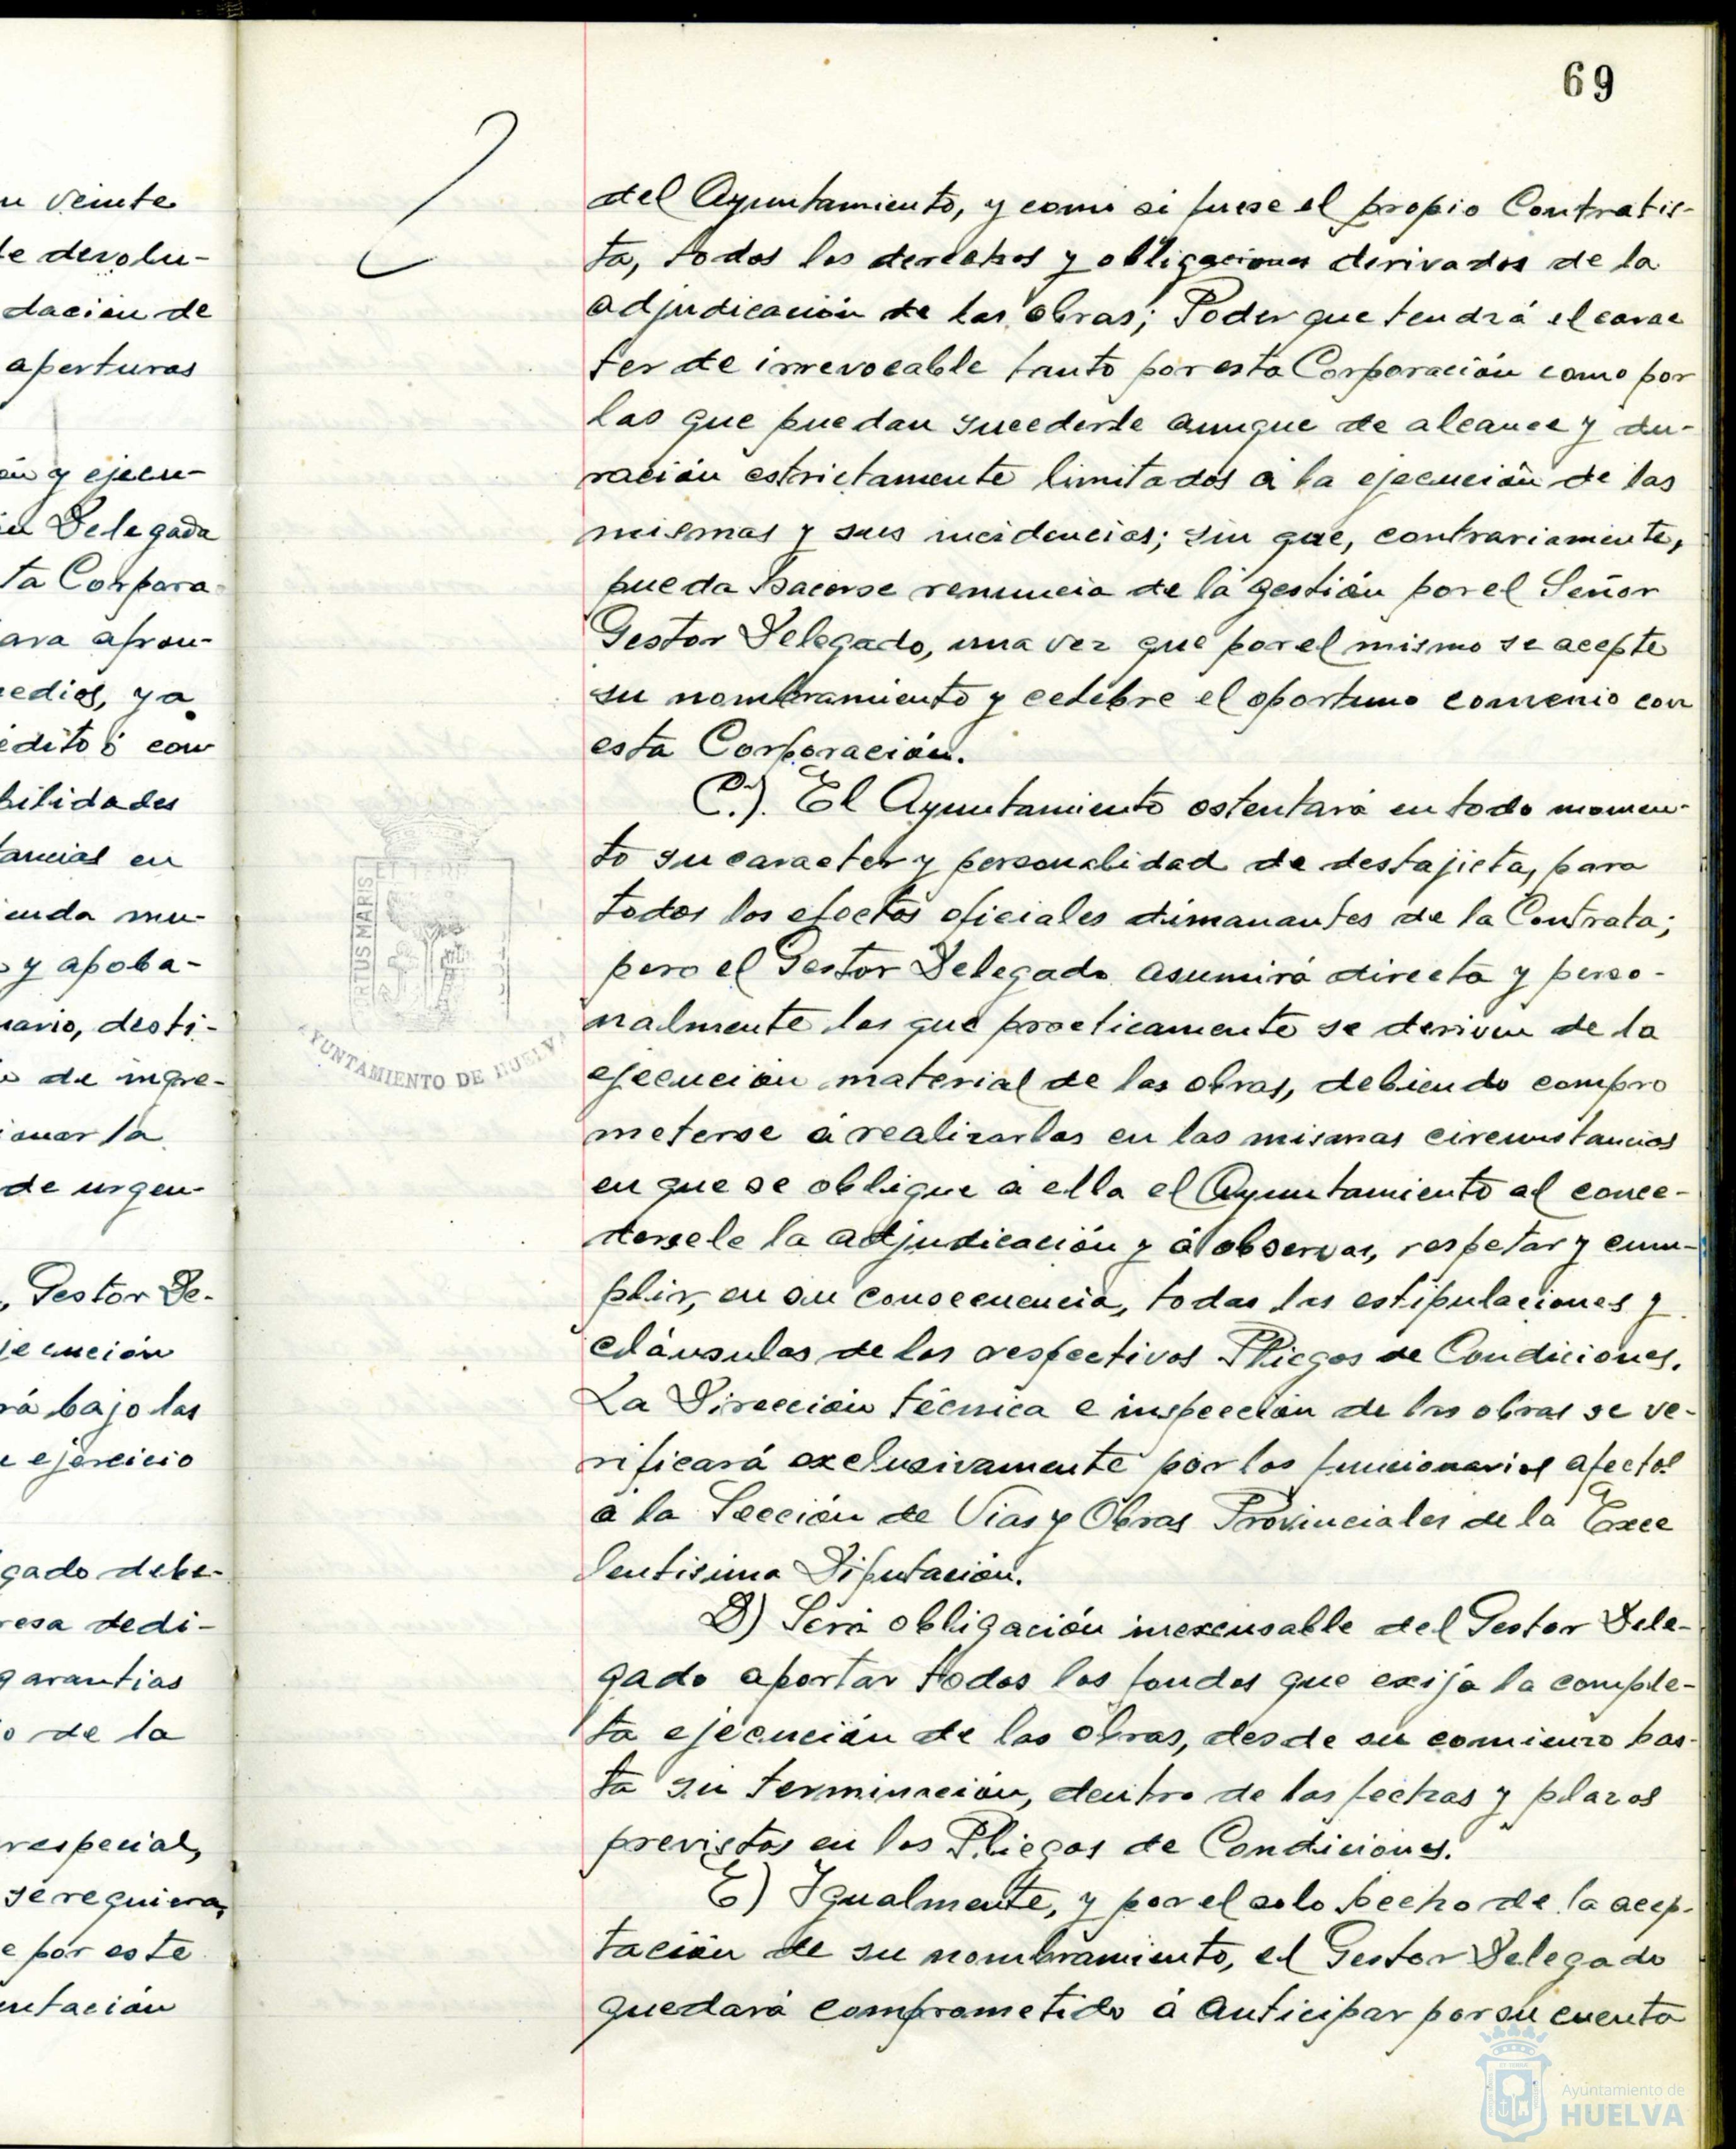 69
n veinte
te devolu-
dación de
aperturas
ón y ejecu-
ón Delegada
ta Corpora-
ara afron-
edios, ya
édito ó con
bilidades
tancias en
enda mu-
o y apoba-
nario, desti-
o de ingre-
ionar la
de urgen-
, Gestor De-
jecución
rá bajo las
e ejercicio
gado debe-
resa dedi-
garantias
o de la
respecial,
se requiera,
e por este
entación
del Ayuntamiento, y como si fuese el propio Contratis-
ta, todos los derechos y obligaciones derivados de la
adjudicación de las obras; Poder que tendrá el carac
ter de irrevocable tanto por esta Corporación como por
las que puedan sucederle aunque de alcance y du-
ración estrictamente limitados á la ejecución de las
mismas y sus incidencias; sin que, contrariamente,
pueda hacerse renuncia de la gestión por el Señor
Gestor Delegado, una vez que por el mismo se acepte
su nombramiento y celebre el oportuno convenio con
esta Corporación.
C.). El Ayuntamiento ostentará en todo momen-
to su caracter y personalidad de destajista, para
todos los efectos oficiales dimanantes de la Contrata;
pero el Gestor Delegado asumirá directa y perso-
nalmente los que practicamente se deriven de la
ejecución material de las obras, debiendo compro
meterse á realizarlas en las mismas circunstancias
en que se obligue á ella el Ayuntamiento al conce-
dersele la adjudicación y á observar, respetar y cum-
plir, en su consecuencia, todas las estipulaciones y
cláusulas de los respectivos Pliegos de Condiciones.
La Dirección técnica e inspección de las obras se ve-
rificará exclusivamente por los funcionarios afectos
á la Sección de Vias y Obras Provinciales de la Exce
lentisima Diputación.
D) Será obligación inexcusable del Gestor Dele-
gado aportar todos los fondos que exija la comple-
ta ejecución de las obras, desde su comienzo has-
ta su terminación, dentro de las fechas y plazos
previstos en los Pliegos de Condiciones.
E) Igualmente, y por el solo hecho de la acep-
tación de su nombramiento, el Gestor Delegado
quedará comprometido á anticipar por su cuenta
PORTUS MARIS ET TERR
AYUNTAMIENTO DE HUELVA
Ayuntamiento de
HUELVA